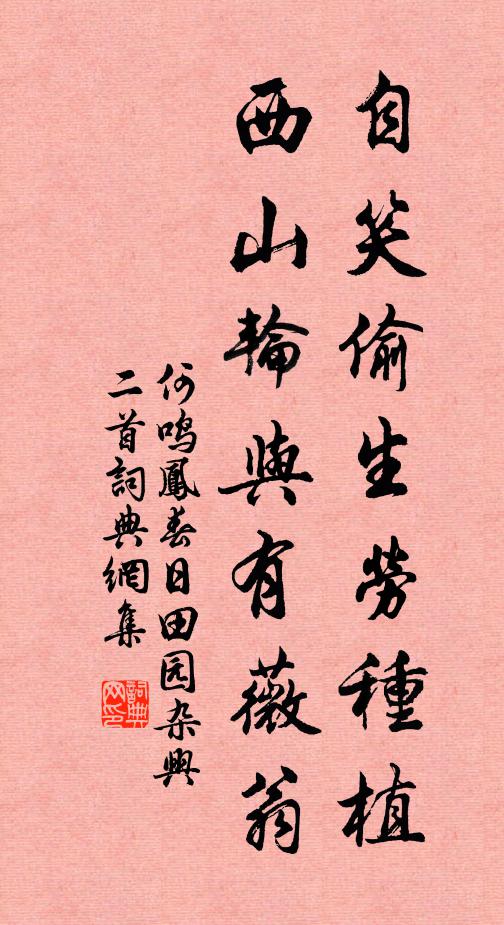 自笑偷生勞種植
西山輪與有薇翁
何鸣鳳春日田园杂興
二首詞典網集
詞典
网印